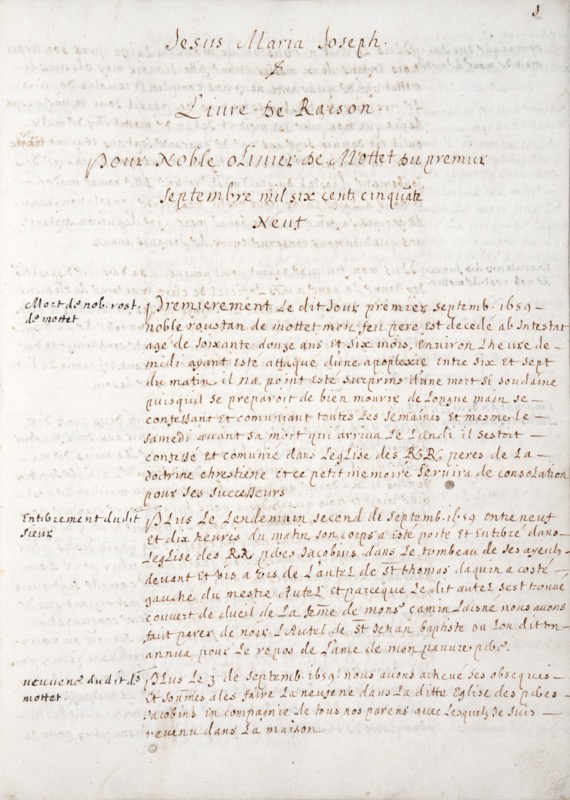 1
Jesus Maria Joseph.
Livre de Raison.
Pour Noble olivier de Mottet du premier
septembre mil six centz cinquãte
Neuf
Mort de nob. rost.
de mottet
Premierement Le dit Jour premier septemb. 1659 —
noble roustan de mottet mon feu pere Est decedé ab Intestat
agé de soixante douze ans Et six mois, Environ Lheure de
midi ayant esté attaqué d'une apoplexie Entre six Et sept
du matin, il na point esté surprins d'une mort si soudaine
puisquil se preparoit de bien mourir de Longue main se —
confessant Et comuniant toutes Les semaines Et mesme Le —
samedi avant sa mort qui arriva Le Lundi il sestoit —
confessé Et comunié dans LEglise des R.R. peres de La —
doctrine chrestiene Et ce petit memoire servira de consolation
pour ses successeurs
Entirement du dit
sieur
Plus Le Lendemain second de septemb. 1659 entre neuf
Et dix heures du matin son corps a Esté porté Et Entiré dans
leglise des RR peres Jacobins dans Le tombeau de ses ayeulx
devant Et vis a vis de L'autel de St thomas daquin a costé —
gauche du mestre Autel Et parceque Le dit autel sest trouvé
couvert de dueil de La feme de monsr camin Laisné nous avons
fait parer de noir L'Autel de St Jehan baptiste ou Lon dit un
annual pour Le repos de l'ame de mon pauvre pere.
neuvene du dit de
mottet.
Plus Le 3e de septemb. 1659 nous avons achevé ses obseques
Et sommes ales faire La neuvene dans La ditte Eglise des peres
Jacobins En compagnie de tous nos parens avec Lesquels Je suis —
revenu dans La maison